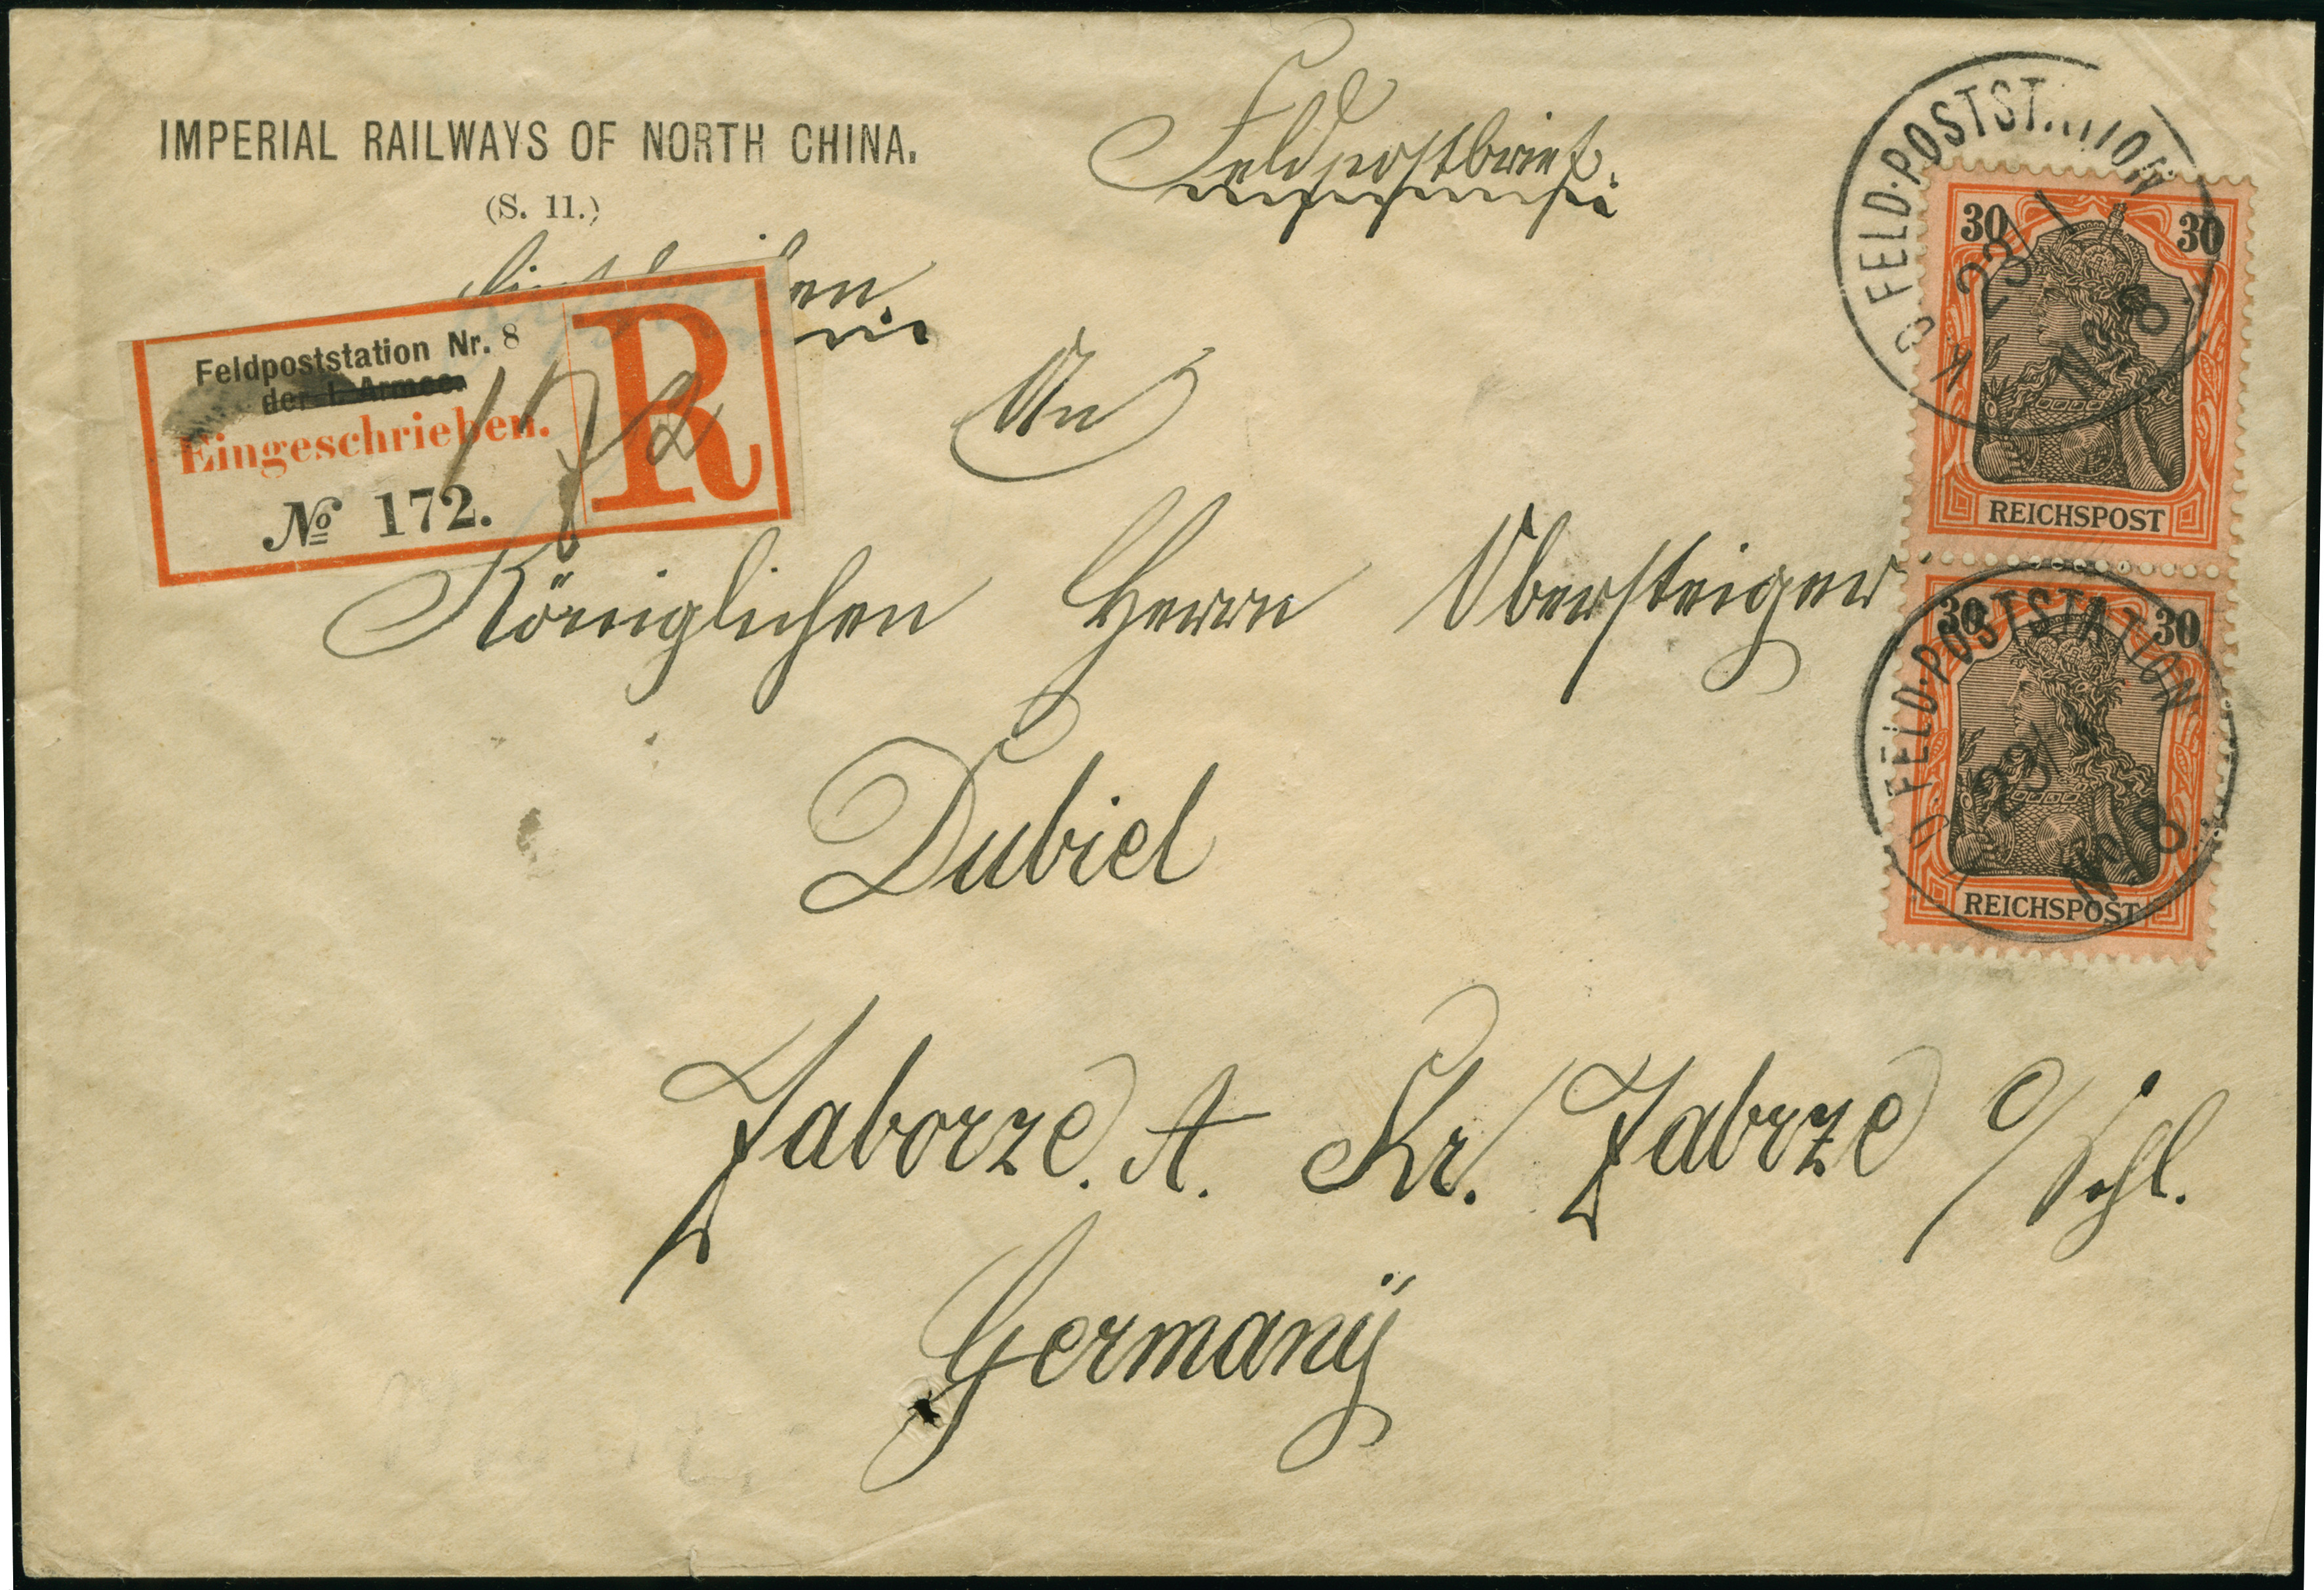 IMPERIAL RAILWAYS OF NORTH CHINA.
(S. 11.)
Feldpostbrief.
Feldpoststation Nr. 8
der I. Armee.
Eingeschrieben.
R
№ 172.
An
Königlichen Herrn Obersteiger
Dubiel
Zaborze. A. Kr. Zabrze O/Schl.
Germany
K. D. FELD-POSTSTATION
23/1
No 8
30 30
REICHSPOST
K. D. FELD-POSTSTATION
23/
No 8
30 30
REICHSPOST